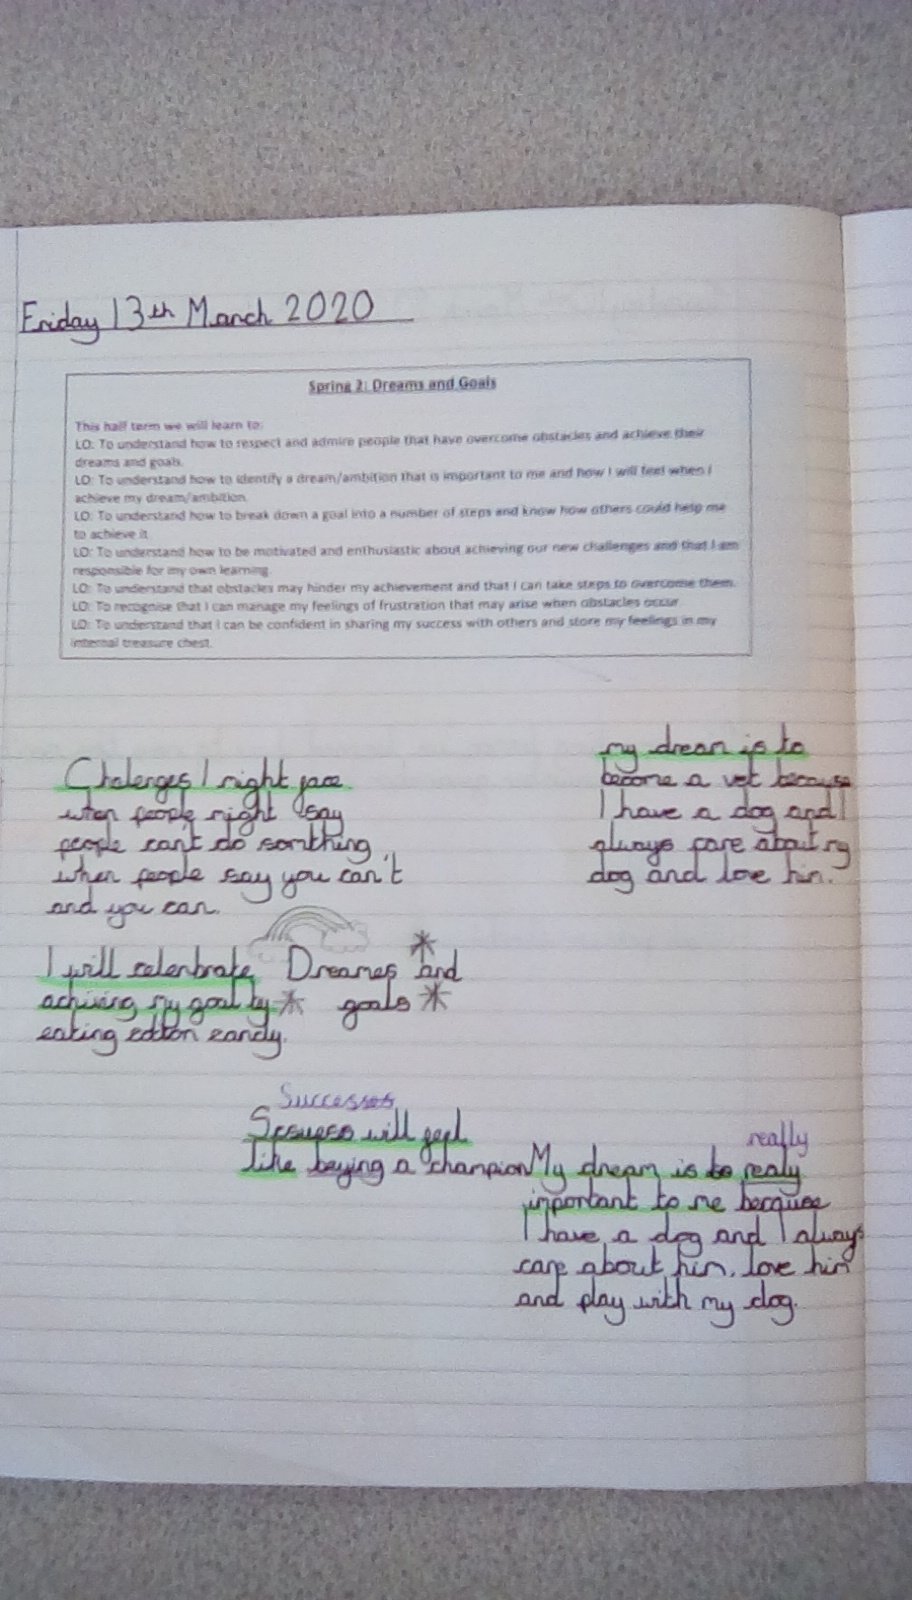 Friday 13th March 2020
Spring 2: Dreams and Goals
This half term we will learn to:
LO: To understand how to respect and admire people that have overcome obstacles and achieve their
dreams and goals.
LO: To understand how to identify a dream/ambition that is important to me and how I will feel when I
achieve my dream/ambition.
LO: To understand how to break down a goal into a number of steps and know how others could help me
to achieve it.
LO: To understand how to be motivated and enthusiastic about achieving our new challenges and that I am
responsible for my own learning.
LO: To understand that obstacles may hinder my achievement and that I can take steps to overcome them.
LO: To recognise that I can manage my feelings of frustration that may arise when obstacles occur
LO: To understand that I can be confident in sharing my success with others and store my feelings in my
internal treasure chest.
my dream is to
become a vet because
I have a dog and I
always care about my
dog and love him.
Chalenges I might face
when people might say
people can't do somthing,
when people say you can't
and you can.
I will celenbrate
achiving my goal by
eating cotton candy.
Dreames and
goals
Successes
will feel
like beying a champion
really
My dream is to realy
important to me because
I have a dog and I always
care about him, love him
and play with my dog.